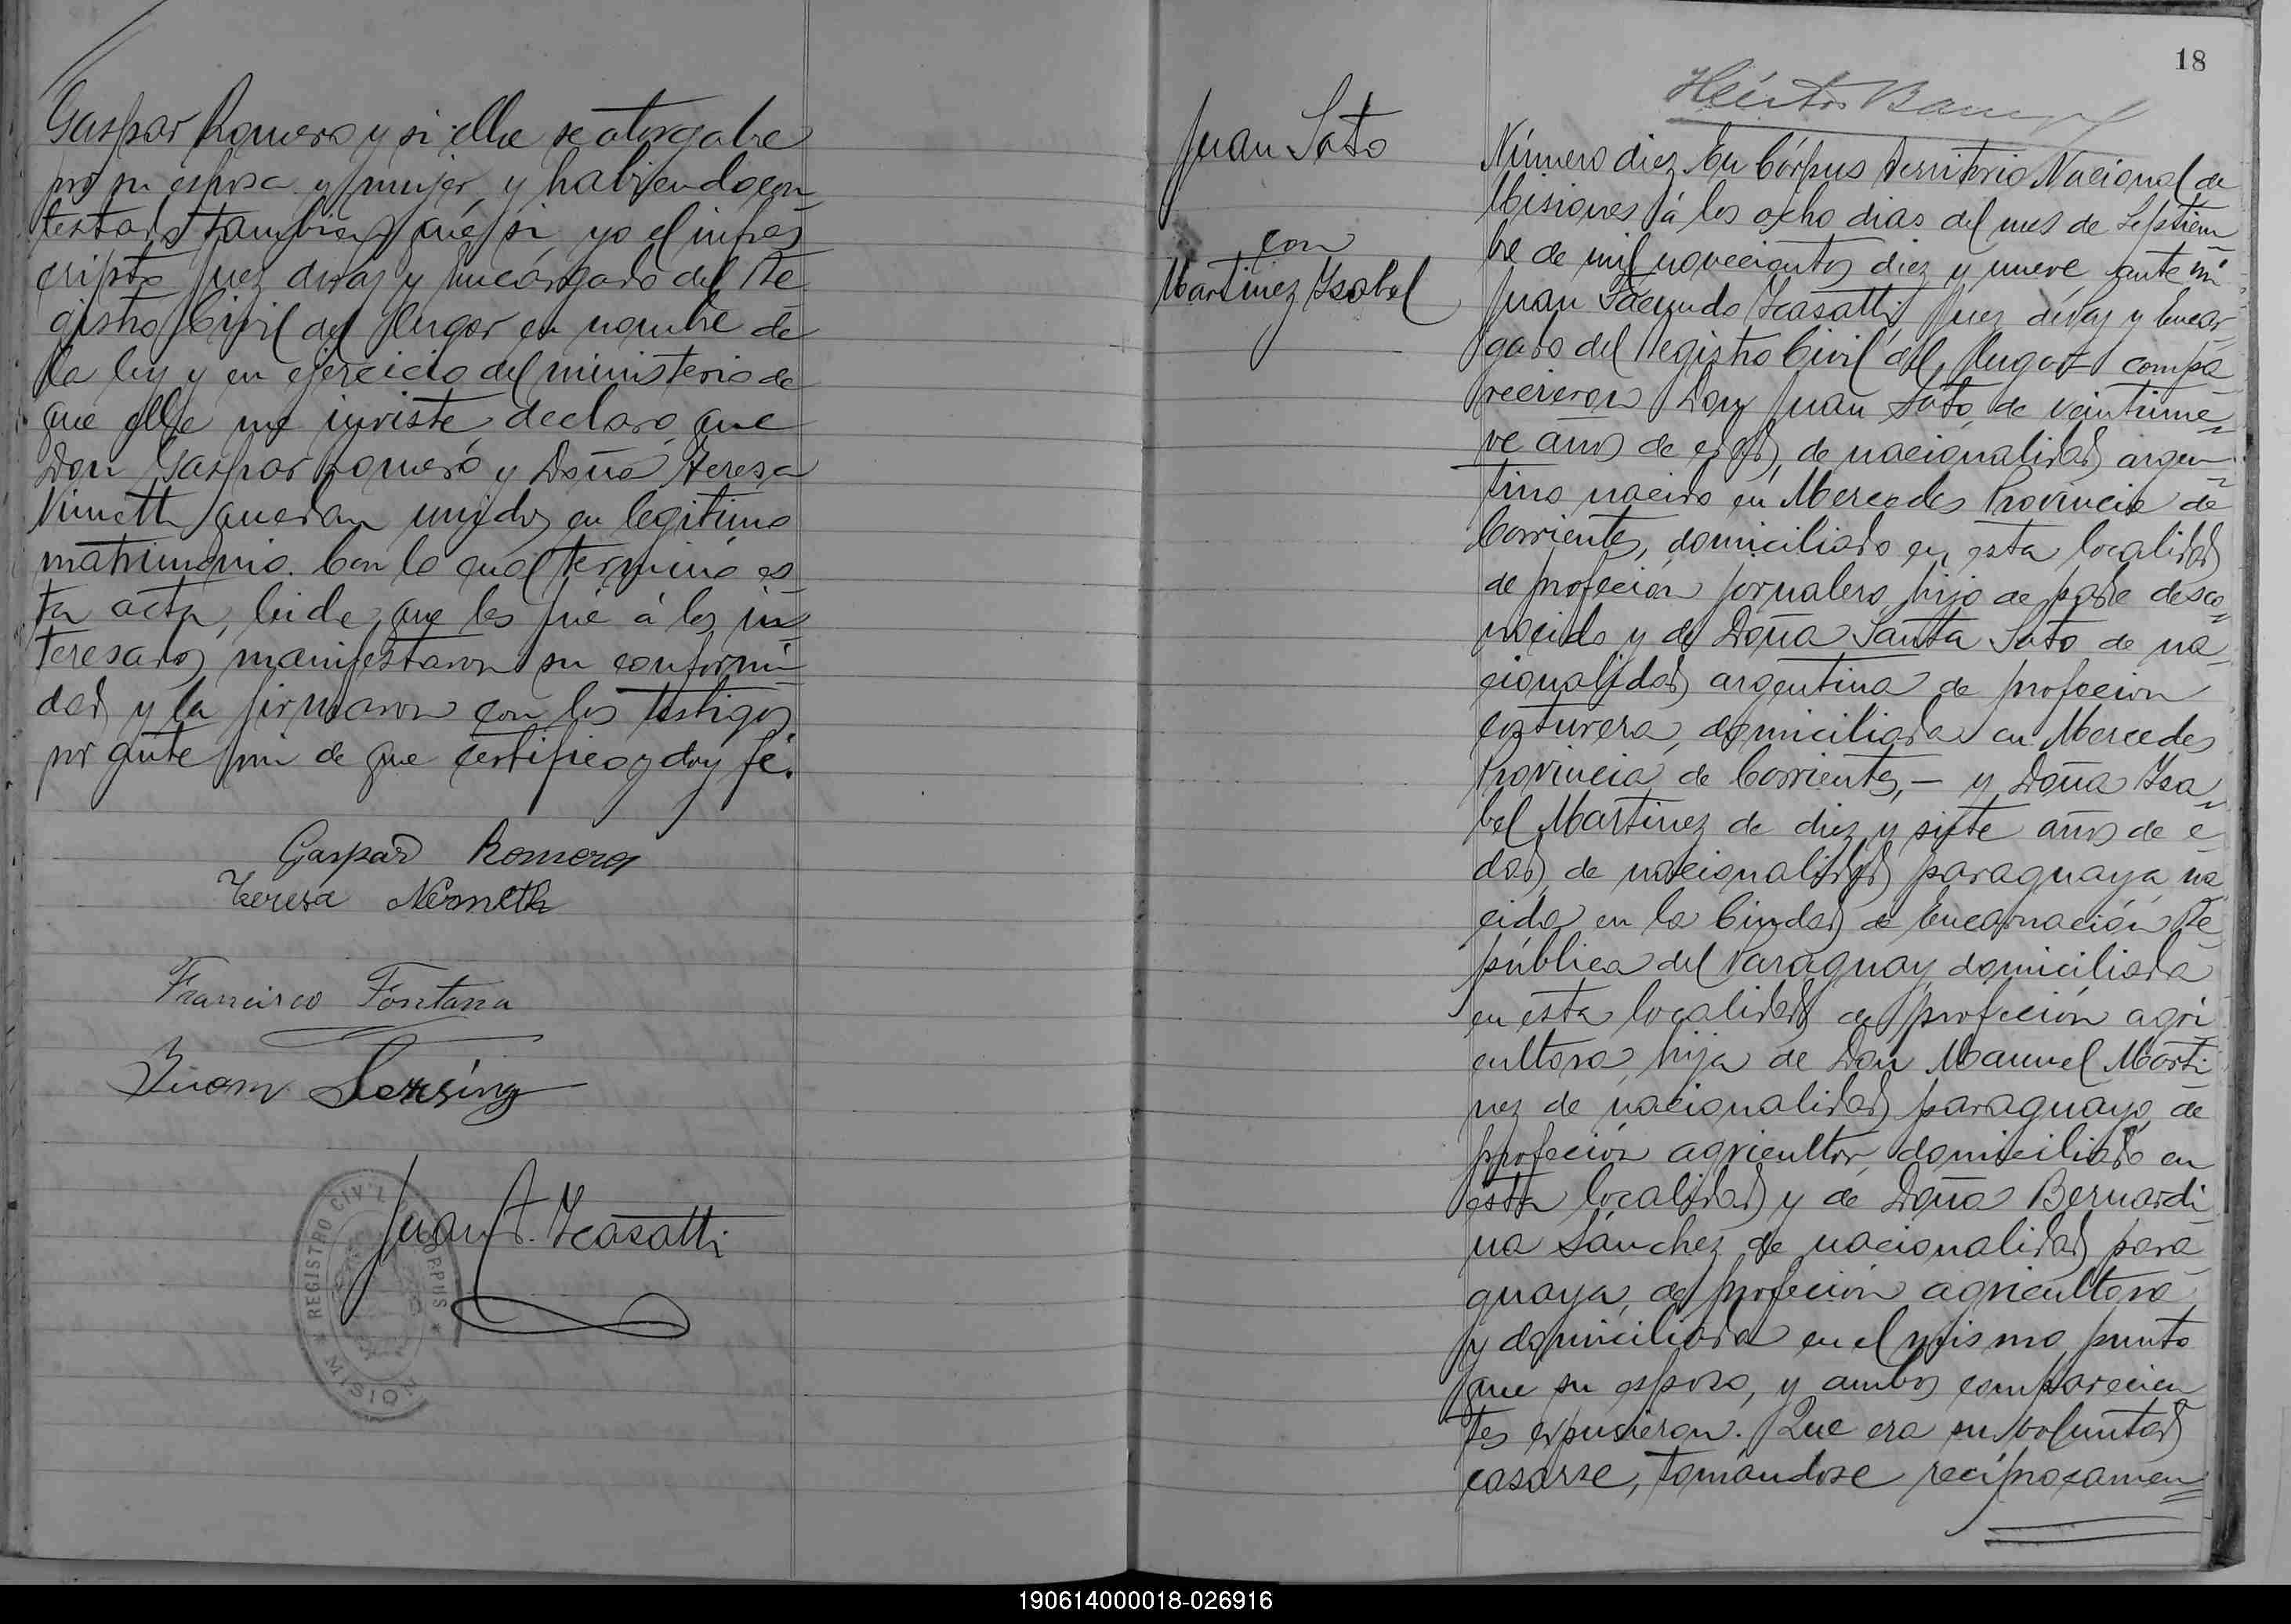 Gaspar Romero y si ella se otorgaba
por su esposa y mujer, y habiendo con
testado tambien que si, yo el infras
cripto Juez de Paz y Encargado del Re
gistro Civil del lugar en nombre de
la ley y en ejercicio del ministerio de
que ella me inviste, declaro que
Don Gaspar Romero y Doña Teresa
Nimett quedan unidos en legitimo
matrimonio. Con lo cual terminó es
ta acta, leida que les fué á los in
teresados manifestaron su conformi
dad y la firmaron con los testigos
por ante mi de que certifico y doy fé.
Gaspar Romero
Teresa Nemeth
Francisco Fontana
Juan
Juan F. Ycasatti
REGISTRO CIVIL CORPUS
MISION
18
Héctor
Juan Soto
con
Martinez Ysabel
Número diez. En Córpus Territorio Nacional de
Misiones á los ocho dias del mes de Septiem
bre de mil novecientos diez y nueve, ante mi
Juan Facundo Ycasatti Juez de Paz y Encar
gado del Registro Civil del lugar compa
recieron Don Juan Soto, de veintinue
ve años de edad, de nacionalidad argen
tino nacido en Mercedes Provincia de
Corrientes, domiciliado en esta localidad
de profecion jornalero, hijo de padre desco
nocido y de Doña Santa Soto de na
cionalidad argentina de profecion
costurera, domiciliada en Mercedes
Provincia de Corrientes, — y Doña Ysa
bel Martinez de diez y siete años de e
dad, de nacionalidad paraguaya, na
cida en la Ciudad de Encarnación Re
pública del Paraguay, domiciliada
en esta localidad de profeción agri
cultora, hija de Don Manuel Marti
nez de nacionalidad paraguayo, de
profeción agricultor, domiciliado en
esta localidad y de Doña Bernardi
na Sánchez de nacionalidad para
guaya, de profeción agricultora
y domiciliada en el mismo punto
que su esposo, y ambos comparecien
tes expusieron. Que era su voluntad
casarse, tomándose recíprocamen
190614000018-026916